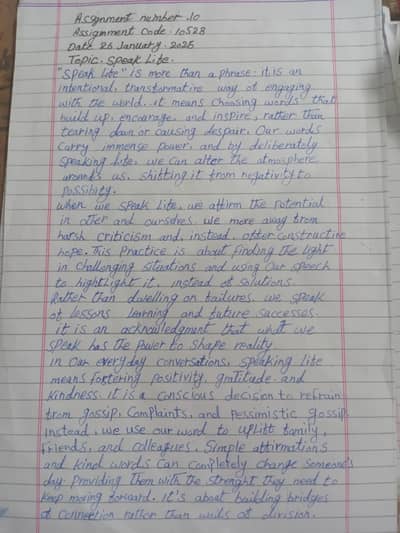 Assgnment number .10
Assignment Code : 10528
Date 26 January . 2025
Topic . Speak Life .
"Speak Life" is more than a phrase . it is an
intentional, transformative way of engaging
with the world . it means choosing words that
build up, encourage, and inspire, rather than
tearing down or causing despair. Our words
Carry immense power, and by deliberately
speaking life, we can alter the atmosphere
arounds us, shifting it from negativity to
possibity.
when we speak Life, we affirm the potential
in other and ourselves we more away from
harsh criticism and, instead, offer constructive
hope. This Practice is about finding the light
in challenging situations and using our speech
to hightlight it, instead of solutions.
Rather than dwelling on failures, we speak
of lessons learning and future successes.
it is an acknowledgment that what we
speak has the power to shape reality
in our everyday conversations, speaking life
means fostering positivity, gratitude and
Kindness. it is a conscious decision to refrain
from gossip, Complaints, and pessimistic glossip.
Instead, we use our word to uplift family,
friends, and colleagues. Simple affirmations
and kind words can completely change someone's
day. Providing them with the strenght they need to
keep moving forward. It's about building bridges
of Connection rather than walls of division.